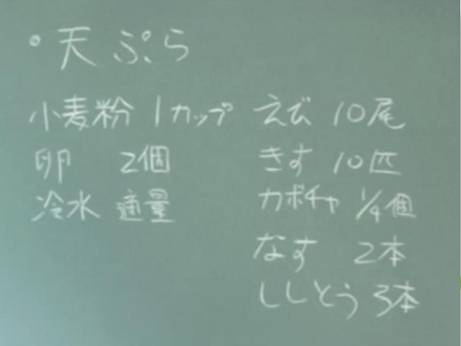 ・天ぷら
小麦粉 1カップ えび 10尾
卵 2個 きす 10匹
冷水 適量 カボチャ 1/4個
なす 2本
ししとう 3本